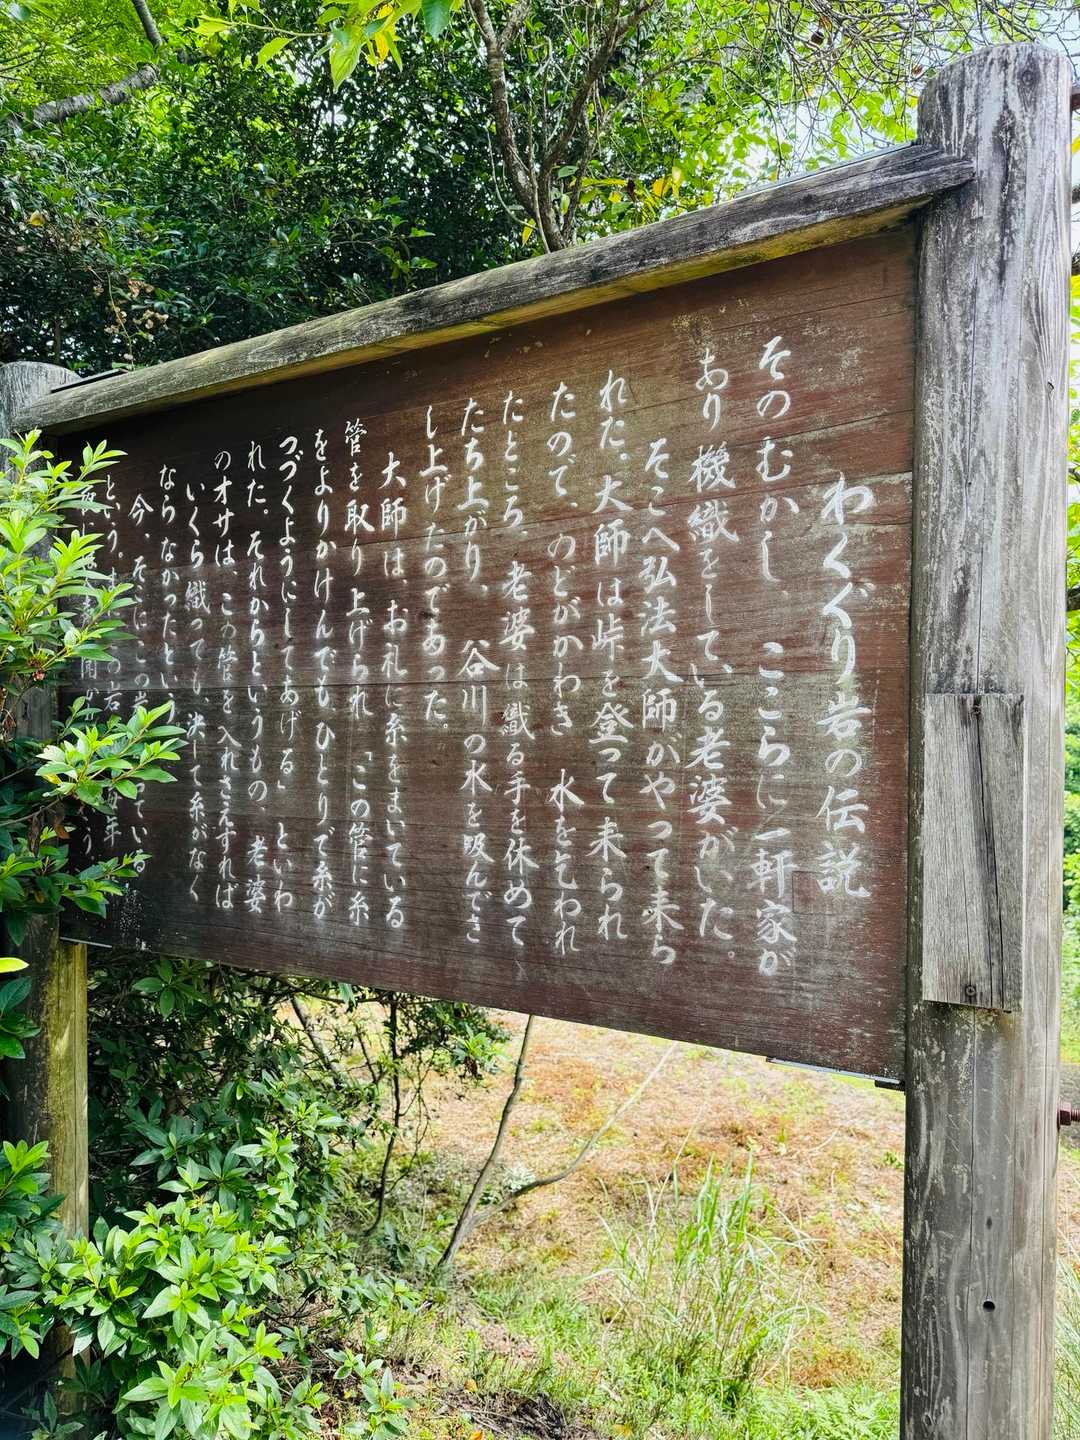 わくぐり岩の伝説
そのむかし、ここらに一軒家が
あり機織をしている老婆がいた。
そこへ弘法大師がやって来ら
れた。大師は峠を登って来られ
たので、のどがかわき 水を乞われ
たところ、老婆は織る手を休めて、
たち上がり、谷川の水を吸んでさ
し上げたのであった。
大師は、お札に糸をまいている
管を取り上げられ「この管に糸
をよりかけんでもひとりで糸が
つづくようにしてあげる」といわ
れた。それからというもの、老婆
のオサは、この管を入れさえすれば
いくら織っても、決して糸がなく
ならなかったという
今、そこにこの岩 っている
という。 の岩 毎年